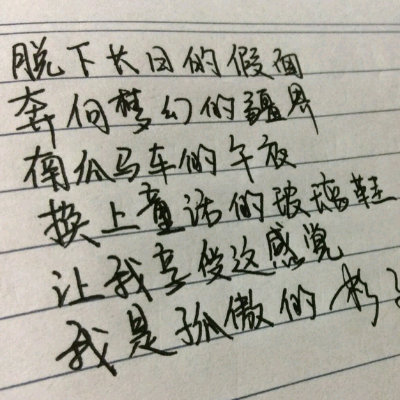 脱下长日的假面
奔向梦幻的疆界
南瓜马车的午夜
换上童话的玻璃鞋
让我享受这感觉
我是孤傲的